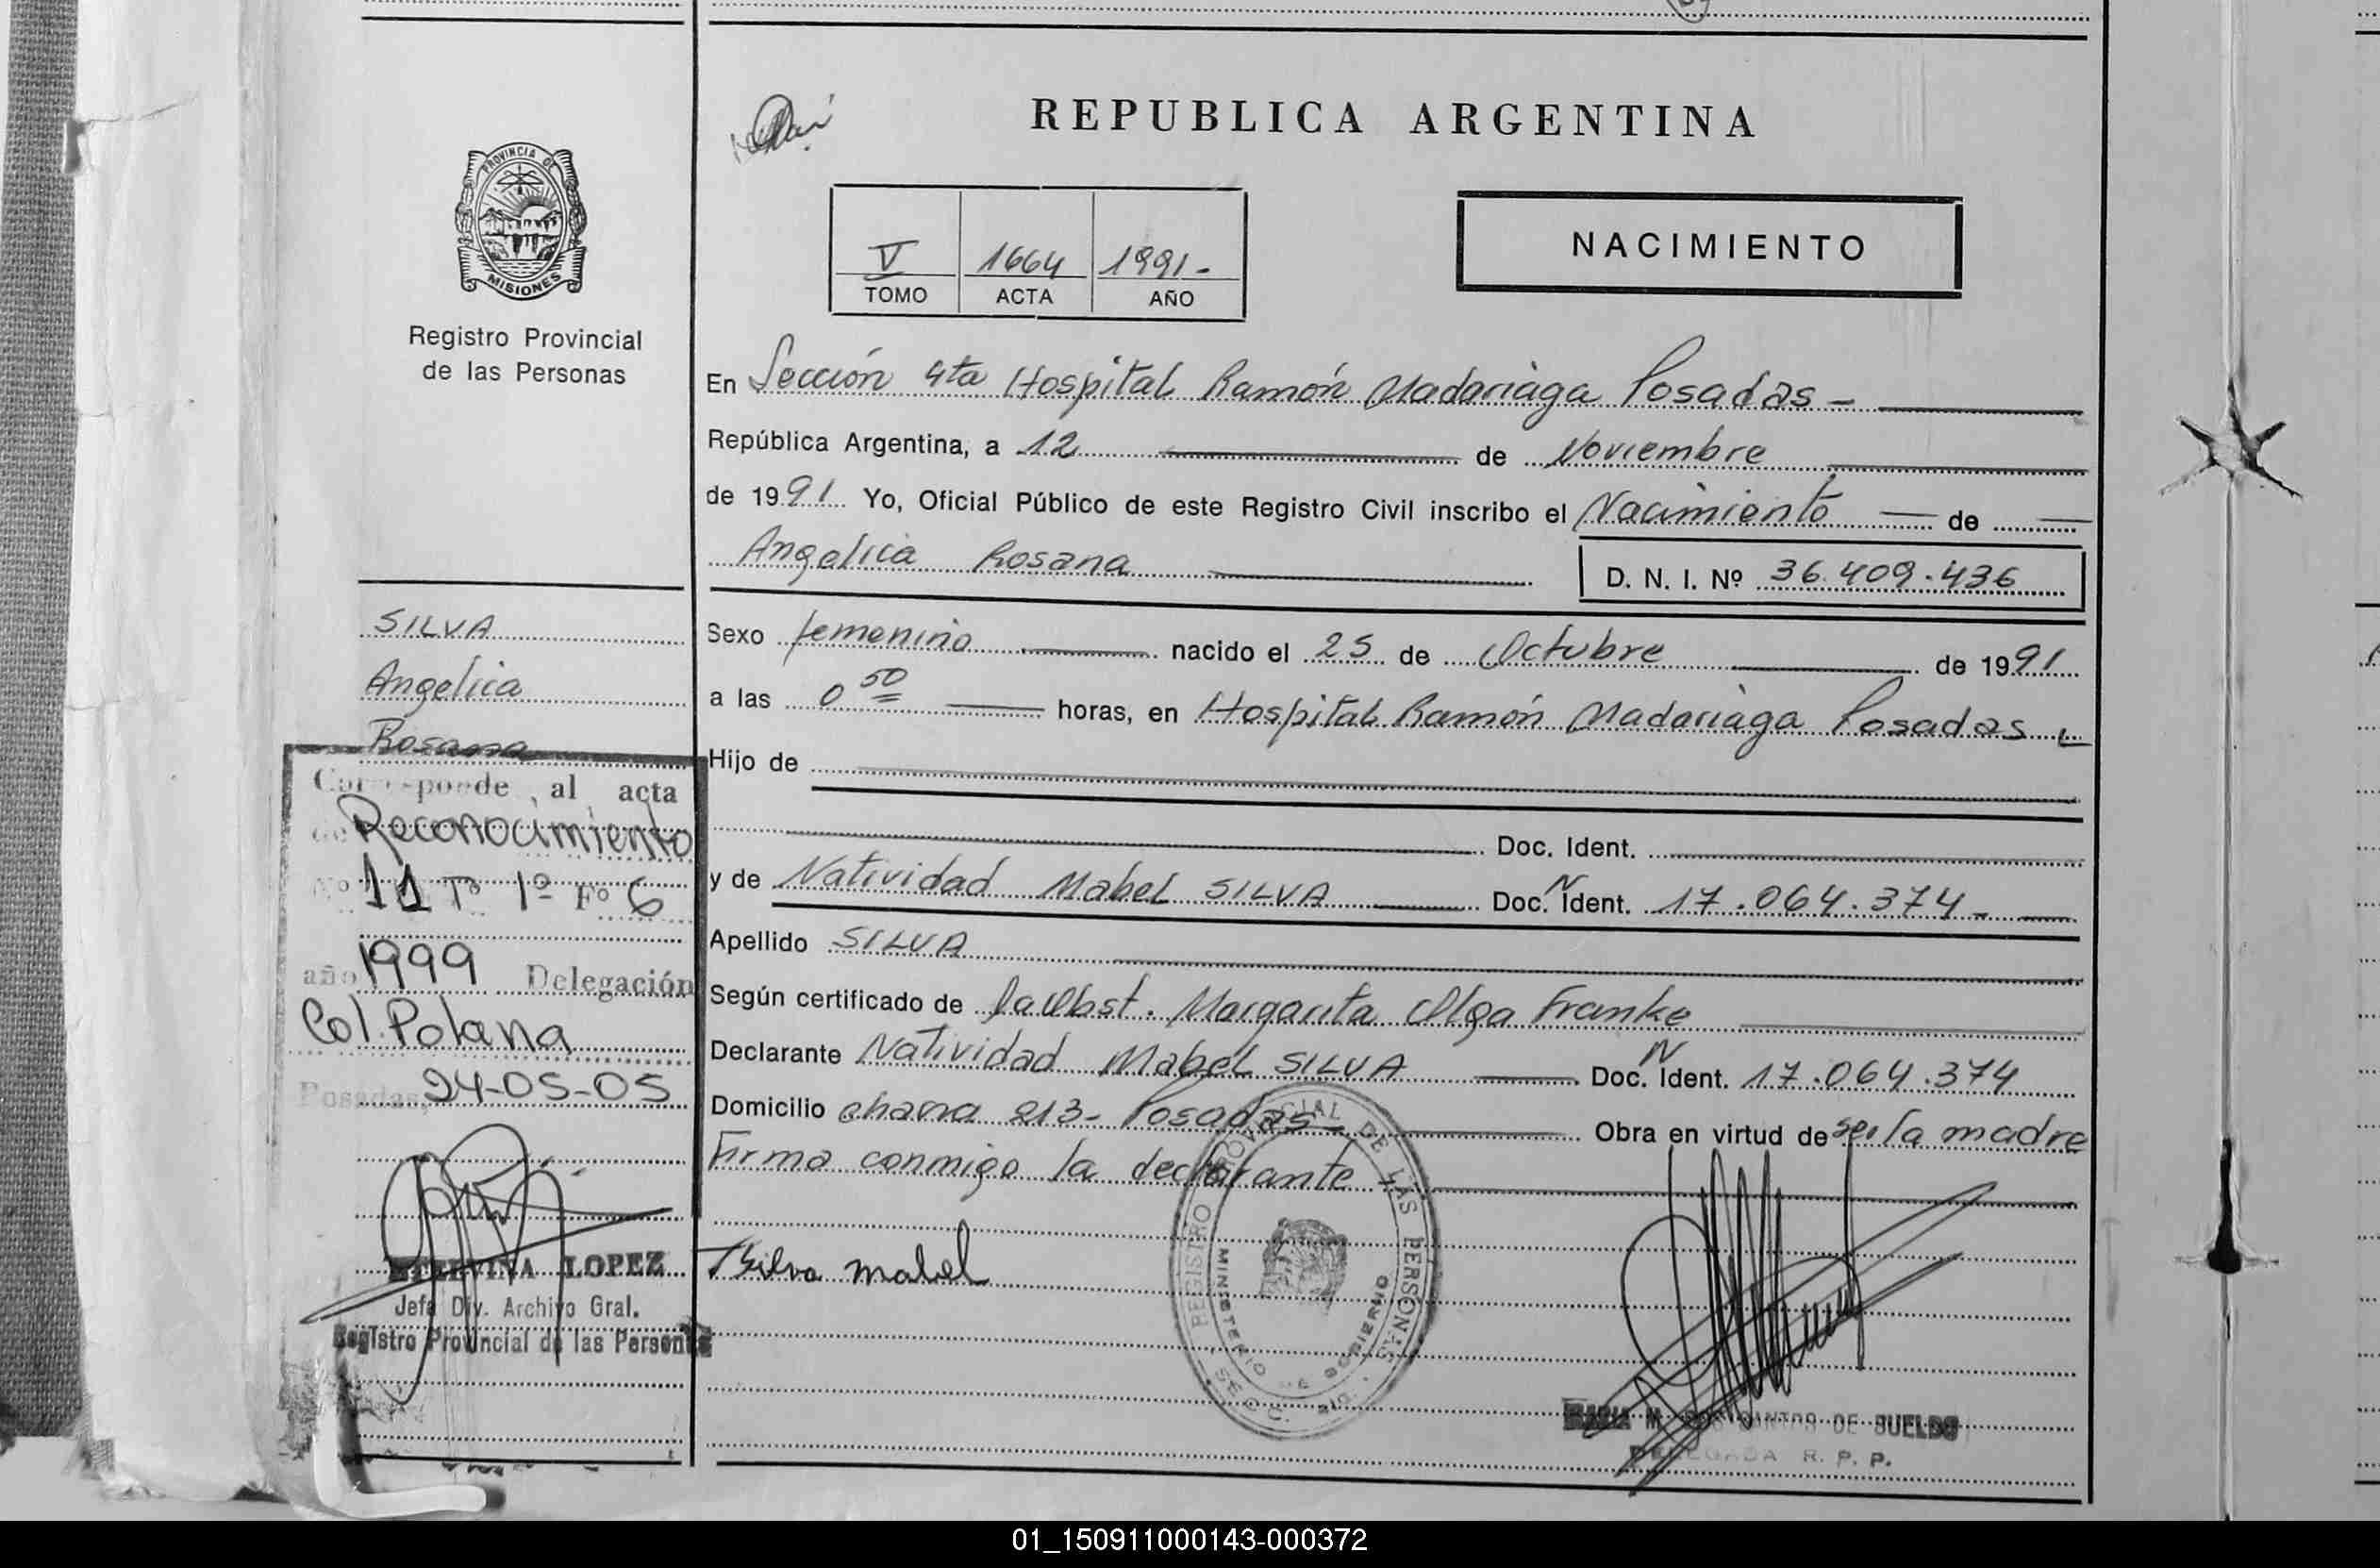 REPUBLICA ARGENTINA
PROVINCIA DE
MISIONES
Registro Provincial
de las Personas
V 1664 1991-
TOMO ACTA AÑO
NACIMIENTO
En Sección 4ta Hospital Ramón Madariaga Posadas -
República Argentina, a 12 de Noviembre
de 1991 Yo, Oficial Público de este Registro Civil inscribo el Nacimiento de
Angelica Rosana D. N. I. Nº 36.409.436
Sexo femenino nacido el 25 de Octubre de 1991
a las 0 50 horas, en Hospital Ramón Madariaga Posadas
Hijo de
Doc. Ident.
y de Natividad Mabel SILVA Doc. N Ident. 17.064.374-
Apellido SILVA
Según certificado de la Obst. Margarita Olga Franke
Declarante Natividad Mabel SILVA Doc. N Ident. 17.064.374
Domicilio chana 213- Posadas- Obra en virtud de ser la madre
Firma conmigo la declarante
Silva mabel
REGISTRO PROVINCIAL DE LAS PERSONAS
MINISTERIO DE GOBIERNO
DE SUELDO
DELEGADA R. P. P.
SILVA
Angelica
Rosana
Corresponde al acta
de Reconocimiento
Nº 11 Tº 1º Fº 6
año 1999 Delegación
Col. Polana
Posadas, 24-05-05
LOPEZ
Jefa Div. Archivo Gral.
Registro Provincial de las Personas
01_150911000143-000372